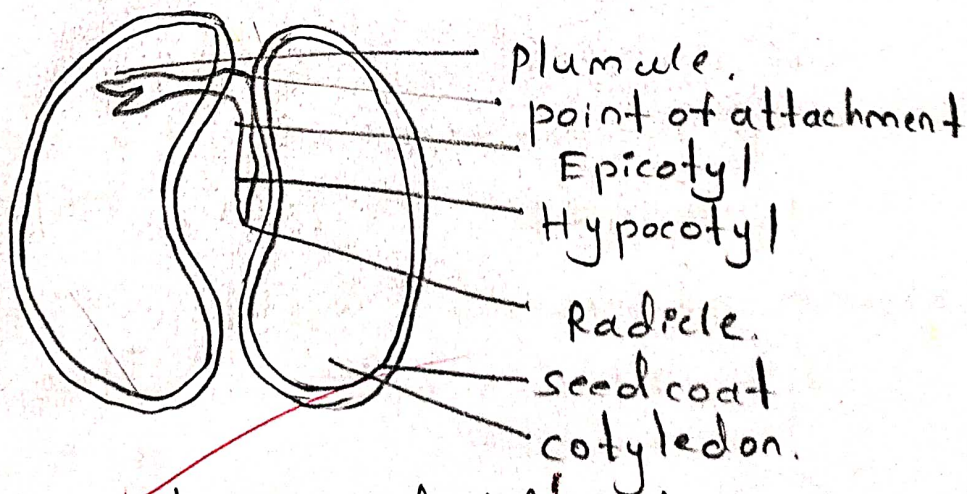 plumule.
point of attachment
Epicotyl
Hypocotyl
Radicle.
seed coat
cotyledon.